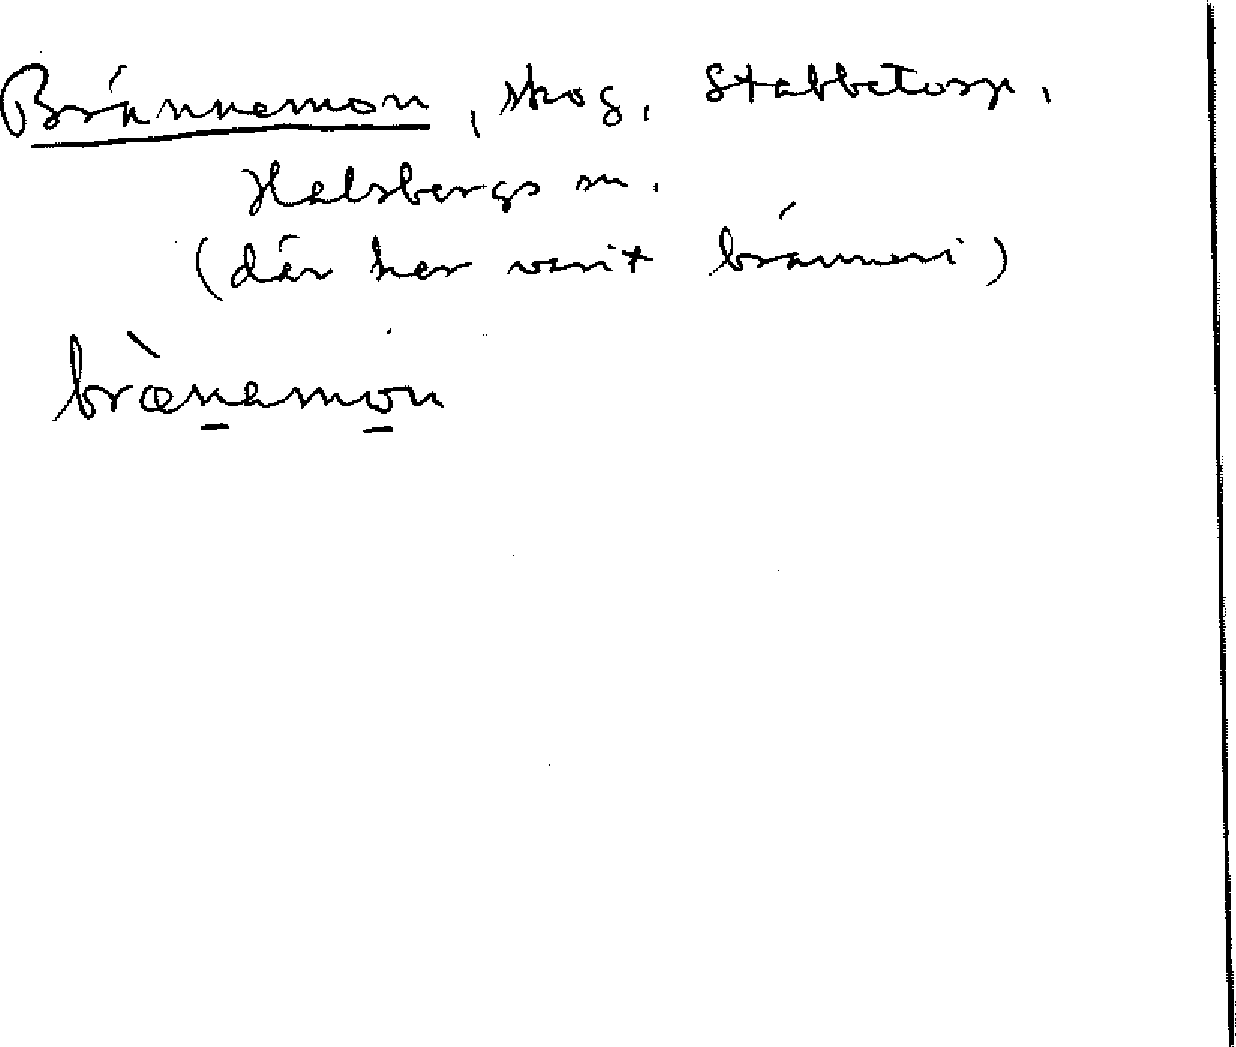 Brännemon, skog, Stabbetorp,
Halsbergs sn.
(där har varit bränneri)
brænamon